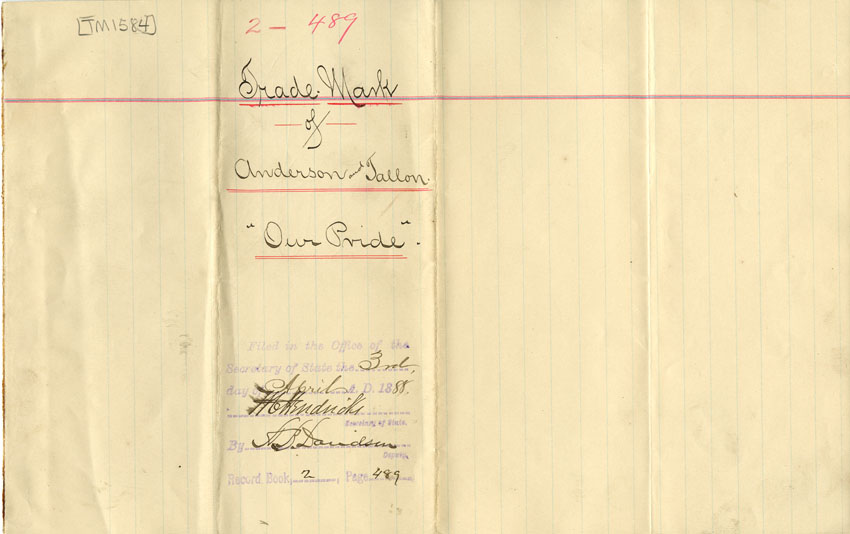 [TM1584]
2 - 489
Trade Mark
of
Anderson and Tallon.
"Our Pride".
Filed in the Office of the
Secretary of State the 3rd,
day of April A. D. 1888.
W C Hendricks
Secretary of State.
By A. B. Davidson
Deputy.
Record Book, 2, Page 489